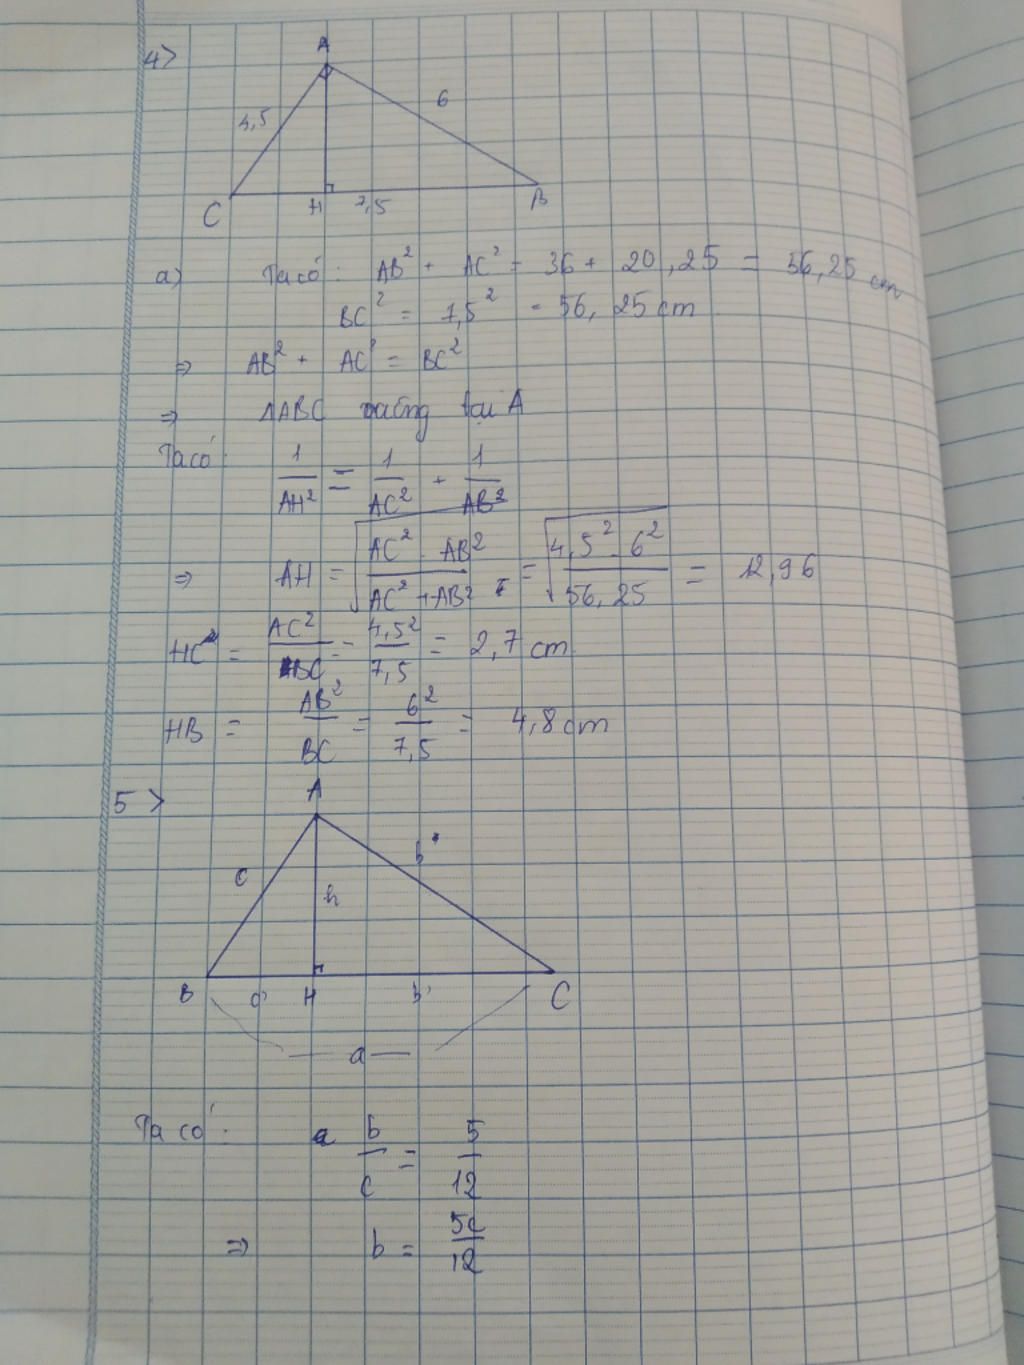 4>
A
4,5
6
C
H
7,5
B
a) Ta có: AB² + AC² = 36 + 20,25 = 56,25 cm
BC² = 7,5² = 56,25 cm
=> AB² + AC² = BC²
=> ΔABC vuông tại A
Ta có: 1/AH² = 1/AC² + 1/AB²
=> AH = √(AC² . AB² / AC² + AB²) = √(4,5² . 6² / 56,25) = 12,96
HC = AC²/BC = 4,5²/7,5 = 2,7 cm
HB = AB²/BC = 6²/7,5 = 4,8 cm
5>
A
c
b
h
B
c'
H
b'
C
a
Ta có: b/c = 5/12
=> b = 5c/12